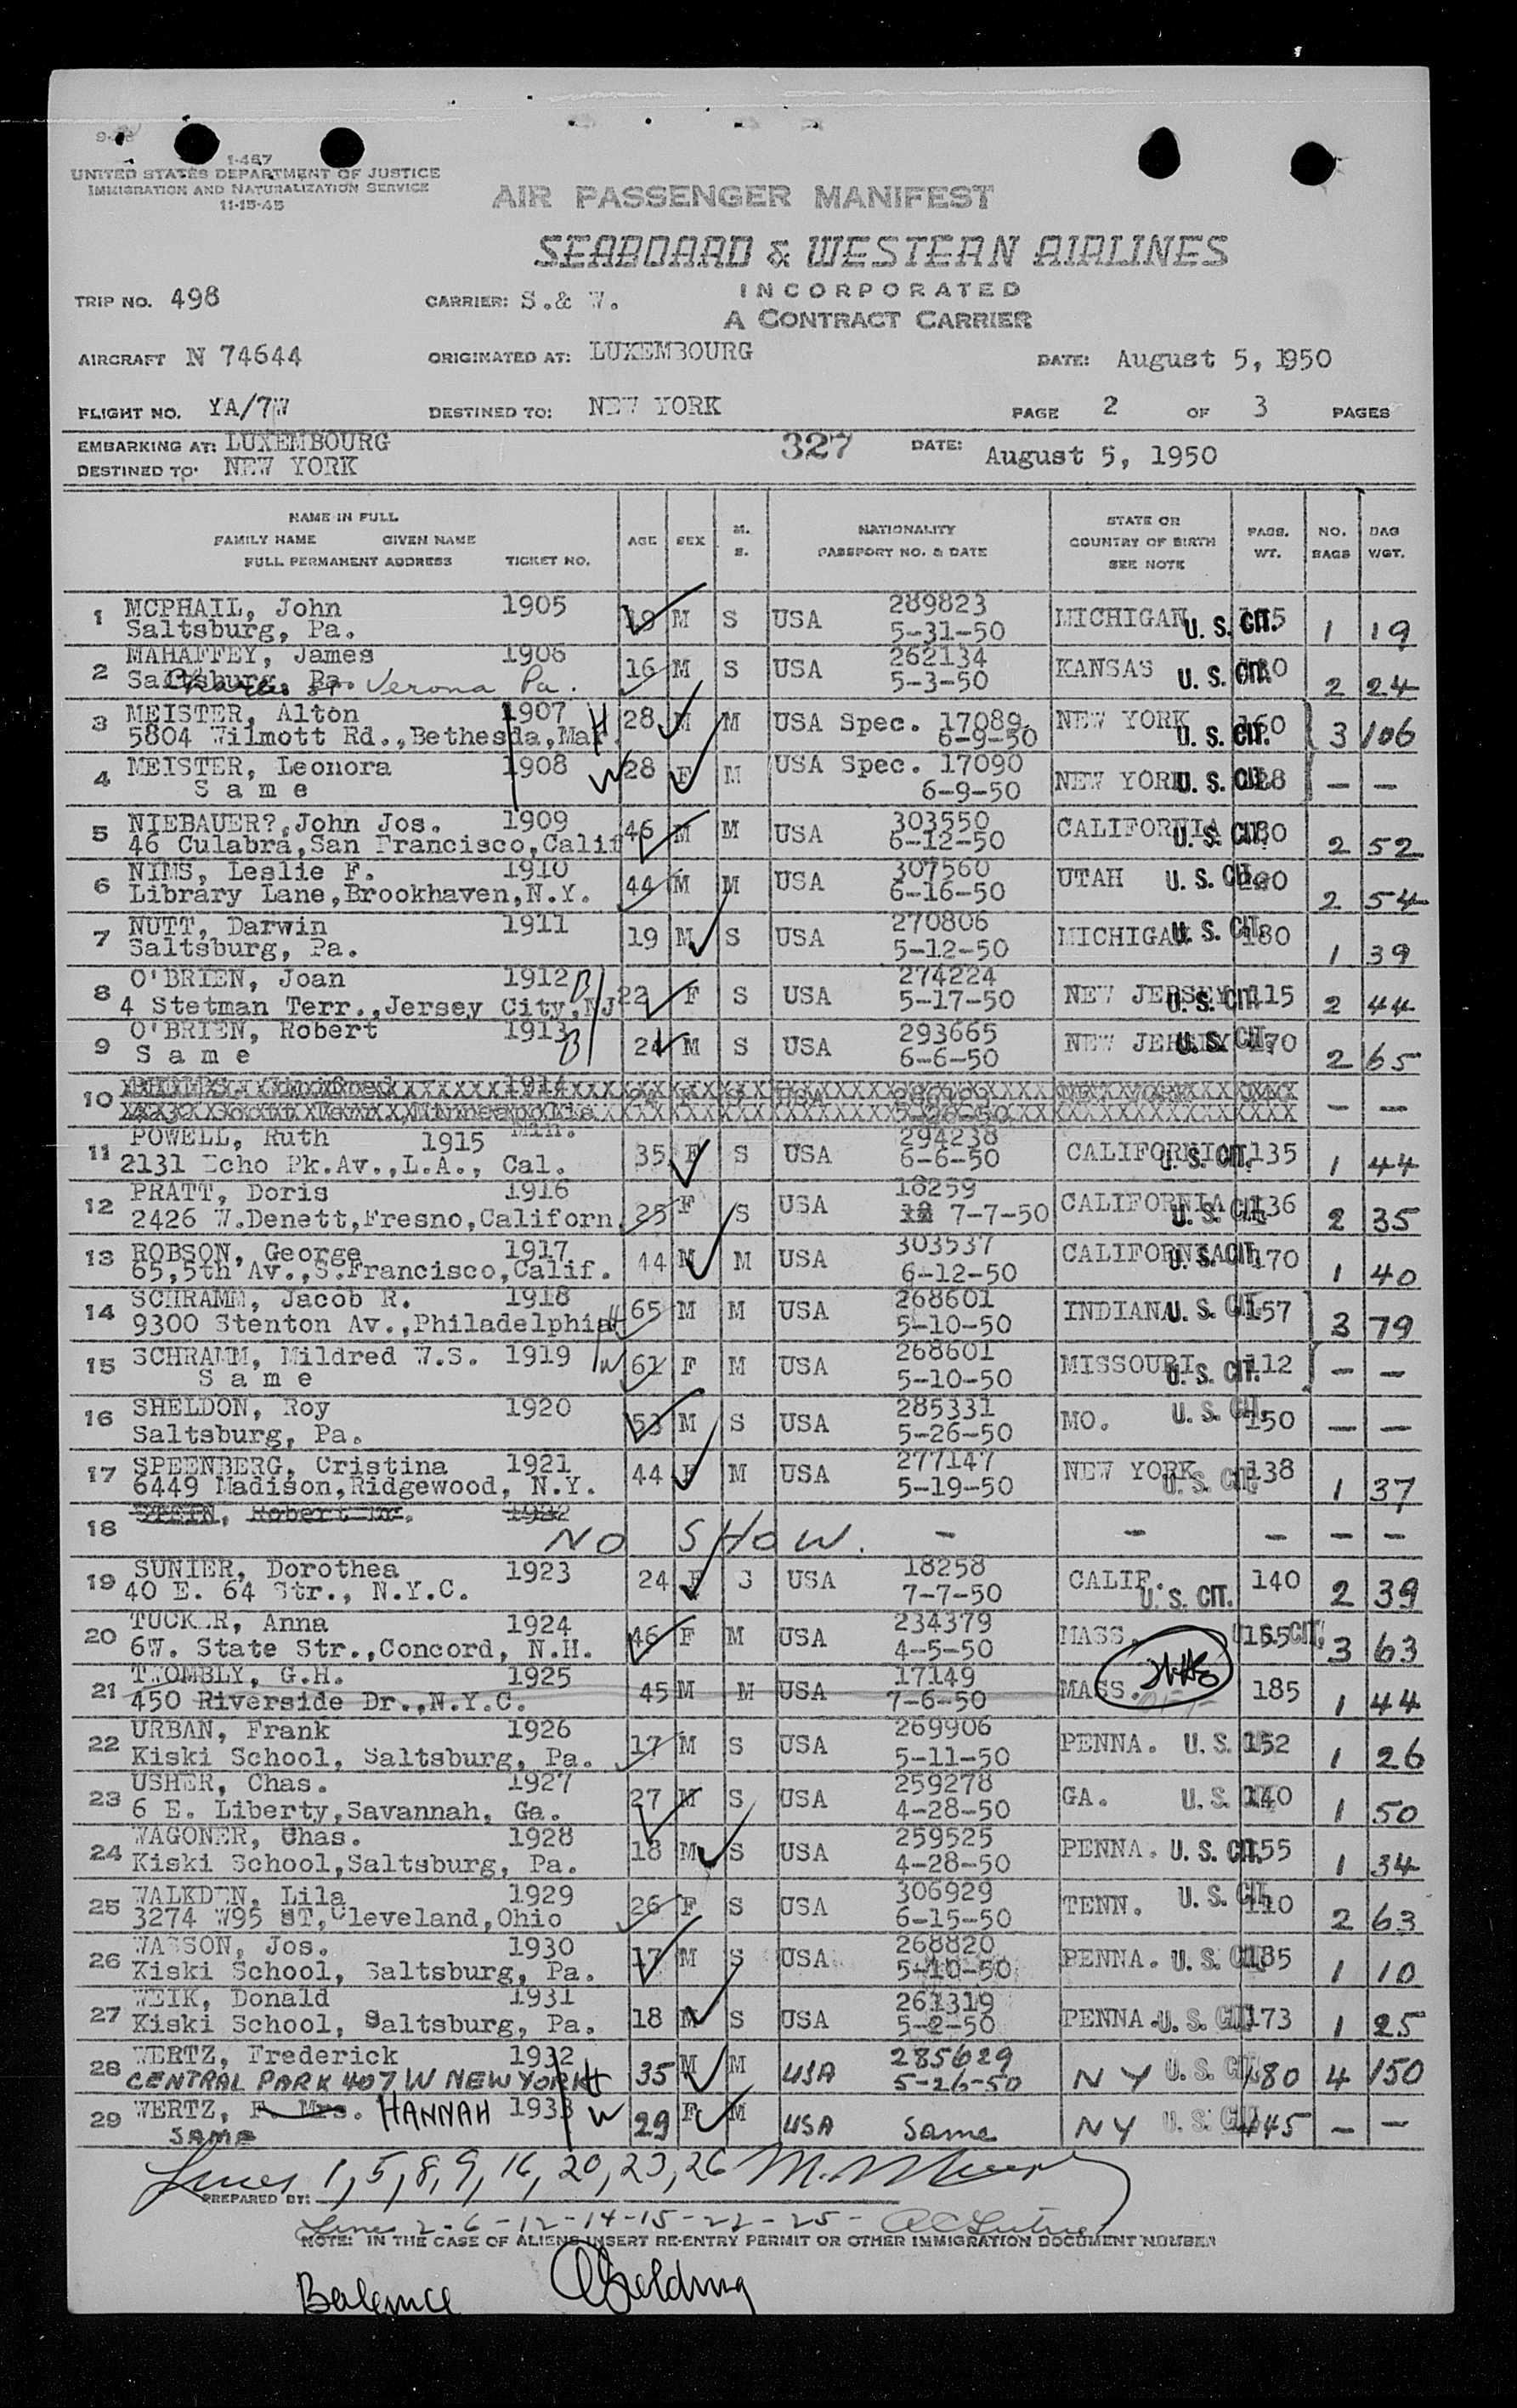 1-467
UNITED STATES DEPARTMENT OF JUSTICE
IMMIGRATION AND NATURALIZATION SERVICE
11-15-45
AIR PASSENGER MANIFEST
SEABOARD & WESTERN AIRLINES
INCORPORATED
A CONTRACT CARRIER
TRIP NO. 498 CARRIER: S.& W.
AIRCRAFT N 74644 ORIGINATED AT: LUXEMBOURG DATE: August 5, 1950
FLIGHT NO. YA/7W DESTINED TO: NEW YORK PAGE 2 OF 3 PAGES
EMBARKING AT: LUXEMBOURG 327 DATE: August 5, 1950
DESTINED TO: NEW YORK
NAME IN FULL
FAMILY NAME GIVEN NAME
FULL PERMANENT ADDRESS TICKET NO. AGE SEX M. S. NATIONALITY PASSPORT NO. & DATE STATE OR COUNTRY OF BIRTH SEE NOTE PASS. WT. NO. BAGS BAG WGT.
1 MCPHAIL, John 1905 19 M S USA 289823 MICHIGAN U. S. CIT. 1 19
Saltsburg, Pa. 5-31-50
2 MAHAFFEY, James 1906 16 M S USA 262134 KANSAS U. S. CIT. 2 24
Saltsburg, Pa. Charles St. Verona Pa. 5-3-50
3 MEISTER, Alton 1907 H 28 M M USA Spec. 17089 NEW YORK U. S. CIT. 160 3 106
5804 Wilmott Rd.,Bethesda,Mar. 6-9-50
4 MEISTER, Leonora 1908 W 28 F M USA Spec. 17090 NEW YORK U. S. CIT. 128 - -
S a m e 6-9-50
5 NIEBAUER?,John Jos. 1909 46 M M USA 303550 CALIFORNIA U. S. CIT. 2 52
46 Culabra,San Francisco,Calif 6-12-50
6 NIMS, Leslie F. 1910 44 M M USA 307560 UTAH U. S. CIT. 2 54
Library Lane,Brookhaven,N.Y. 6-16-50
7 NUTT, Darwin 1911 19 M S USA 270806 MICHIGAN U. S. CIT. 180 1 39
Saltsburg, Pa. 5-12-50
8 O'BRIEN, Joan 1912 B 22 F S USA 274224 NEW JERSEY U. S. CIT. 115 2 44
4 Stetman Terr.,Jersey City,NJ 5-17-50
9 O'BRIEN, Robert 1913 B 24 M S USA 293665 NEW JERSEY U. S. CIT. 170 2 65
S a m e 6-6-50
10 1914 - -
Min.
11 POWELL, Ruth 1915 35 F S USA 294238 CALIFORNIA U. S. CIT. 135 1 44
2131 Echo Pk.Av.,L.A., Cal. 6-6-50
12 PRATT, Doris 1916 25 F S USA 18259 CALIFORNIA U. S. CIT. 136 2 35
2426 W.Denett,Fresno,Californ. 7-7-50
13 ROBSON, George 1917 44 M M USA 303537 CALIFORNIA U. S. CIT. 170 1 40
65,5th Av.,S.Francisco,Calif. 6-12-50
14 SCHRAMM, Jacob R. 1918 H 65 M M USA 268601 INDIANA U. S. CIT. 157 3 79
9300 Stenton Av.,Philadelphia 5-10-50
15 SCHRAMM, Mildred W.S. 1919 W 61 F M USA 268601 MISSOURI U. S. CIT. 112 - -
S a m e 5-10-50
16 SHELDON, Roy 1920 53 M S USA 285331 MO. U. S. CIT. 150 - -
Saltsburg, Pa. 5-26-50
17 SPEENBERG, Cristina 1921 44 F M USA 277147 NEW YORK U. S. CIT. 138 1 37
6449 Madison,Ridgewood, N.Y. 5-19-50
18 STEIN, Robert Mr. 1922 NO SHOW. - - - - -
19 SUNIER, Dorothea 1923 24 F S USA 18258 CALIF. U. S. CIT. 140 2 39
40 E. 64 Str., N.Y.C. 7-7-50
20 TUCKER, Anna 1924 46 F M USA 234379 MASS. U. S. CIT. 155 3 63
6W. State Str.,Concord, N.H. 4-5-50
21 TWOMBLY, G.H. 1925 45 M M USA 17149 MASS. 185 1 44
450 Riverside Dr.,N.Y.C. 7-6-50
22 URBAN, Frank 1926 17 M S USA 269906 PENNA. U. S. 152 1 26
Kiski School, Saltsburg, Pa. 5-11-50
23 USHER, Chas. 1927 27 M S USA 259278 GA. U. S. 140 1 50
6 E. Liberty,Savannah, Ga. 4-28-50
24 WAGONER, Chas. 1928 18 M S USA 259525 PENNA. U. S. CIT. 155 1 34
Kiski School,Saltsburg, Pa. 4-28-50
25 WALKDEN, Lila 1929 26 F S USA 306929 TENN. U. S. CIT. 110 2 63
3274 W95 ST,Cleveland,Ohio 6-15-50
26 WASSON, Jos. 1930 17 M S USA 268820 PENNA. U. S. CIT. 185 1 10
Kiski School, Saltsburg, Pa. 5-10-50
27 WEIK, Donald 1931 18 M S USA 261319 PENNA. U. S. CIT. 173 1 25
Kiski School, Saltsburg, Pa. 5-2-50
28 WERTZ, Frederick 1932 H 35 M M USA 285629 N Y U. S. CIT. 180 4 150
CENTRAL PARK 407 W NEW YORK 5-26-50
29 WERTZ, F. Mrs. HANNAH 1933 W 29 F M USA Same N Y U. S. CIT. 145 - -
SAME
Lines 1, 5, 8, 9, 16, 20, 23, 26
PREPARED BY:
Lines 2-6-12-14-15-22-25-
NOTE: IN THE CASE OF ALIENS INSERT RE-ENTRY PERMIT OR OTHER IMMIGRATION DOCUMENT NUMBER
Balance